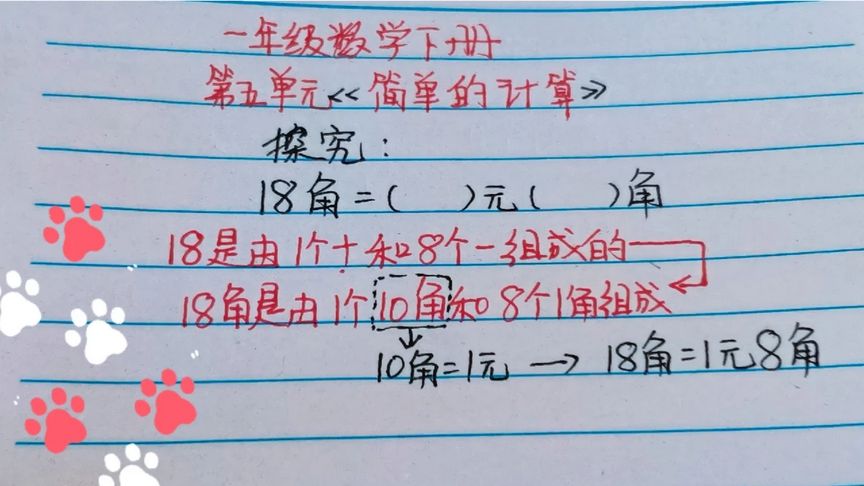 一年级数学下册
第五单元<<简单的计算>>
探究:
18角=( )元( )角
18是由1个十和8个一组成的
18角是由1个10角和8个1角组成
10角=1元→18角=1元8角